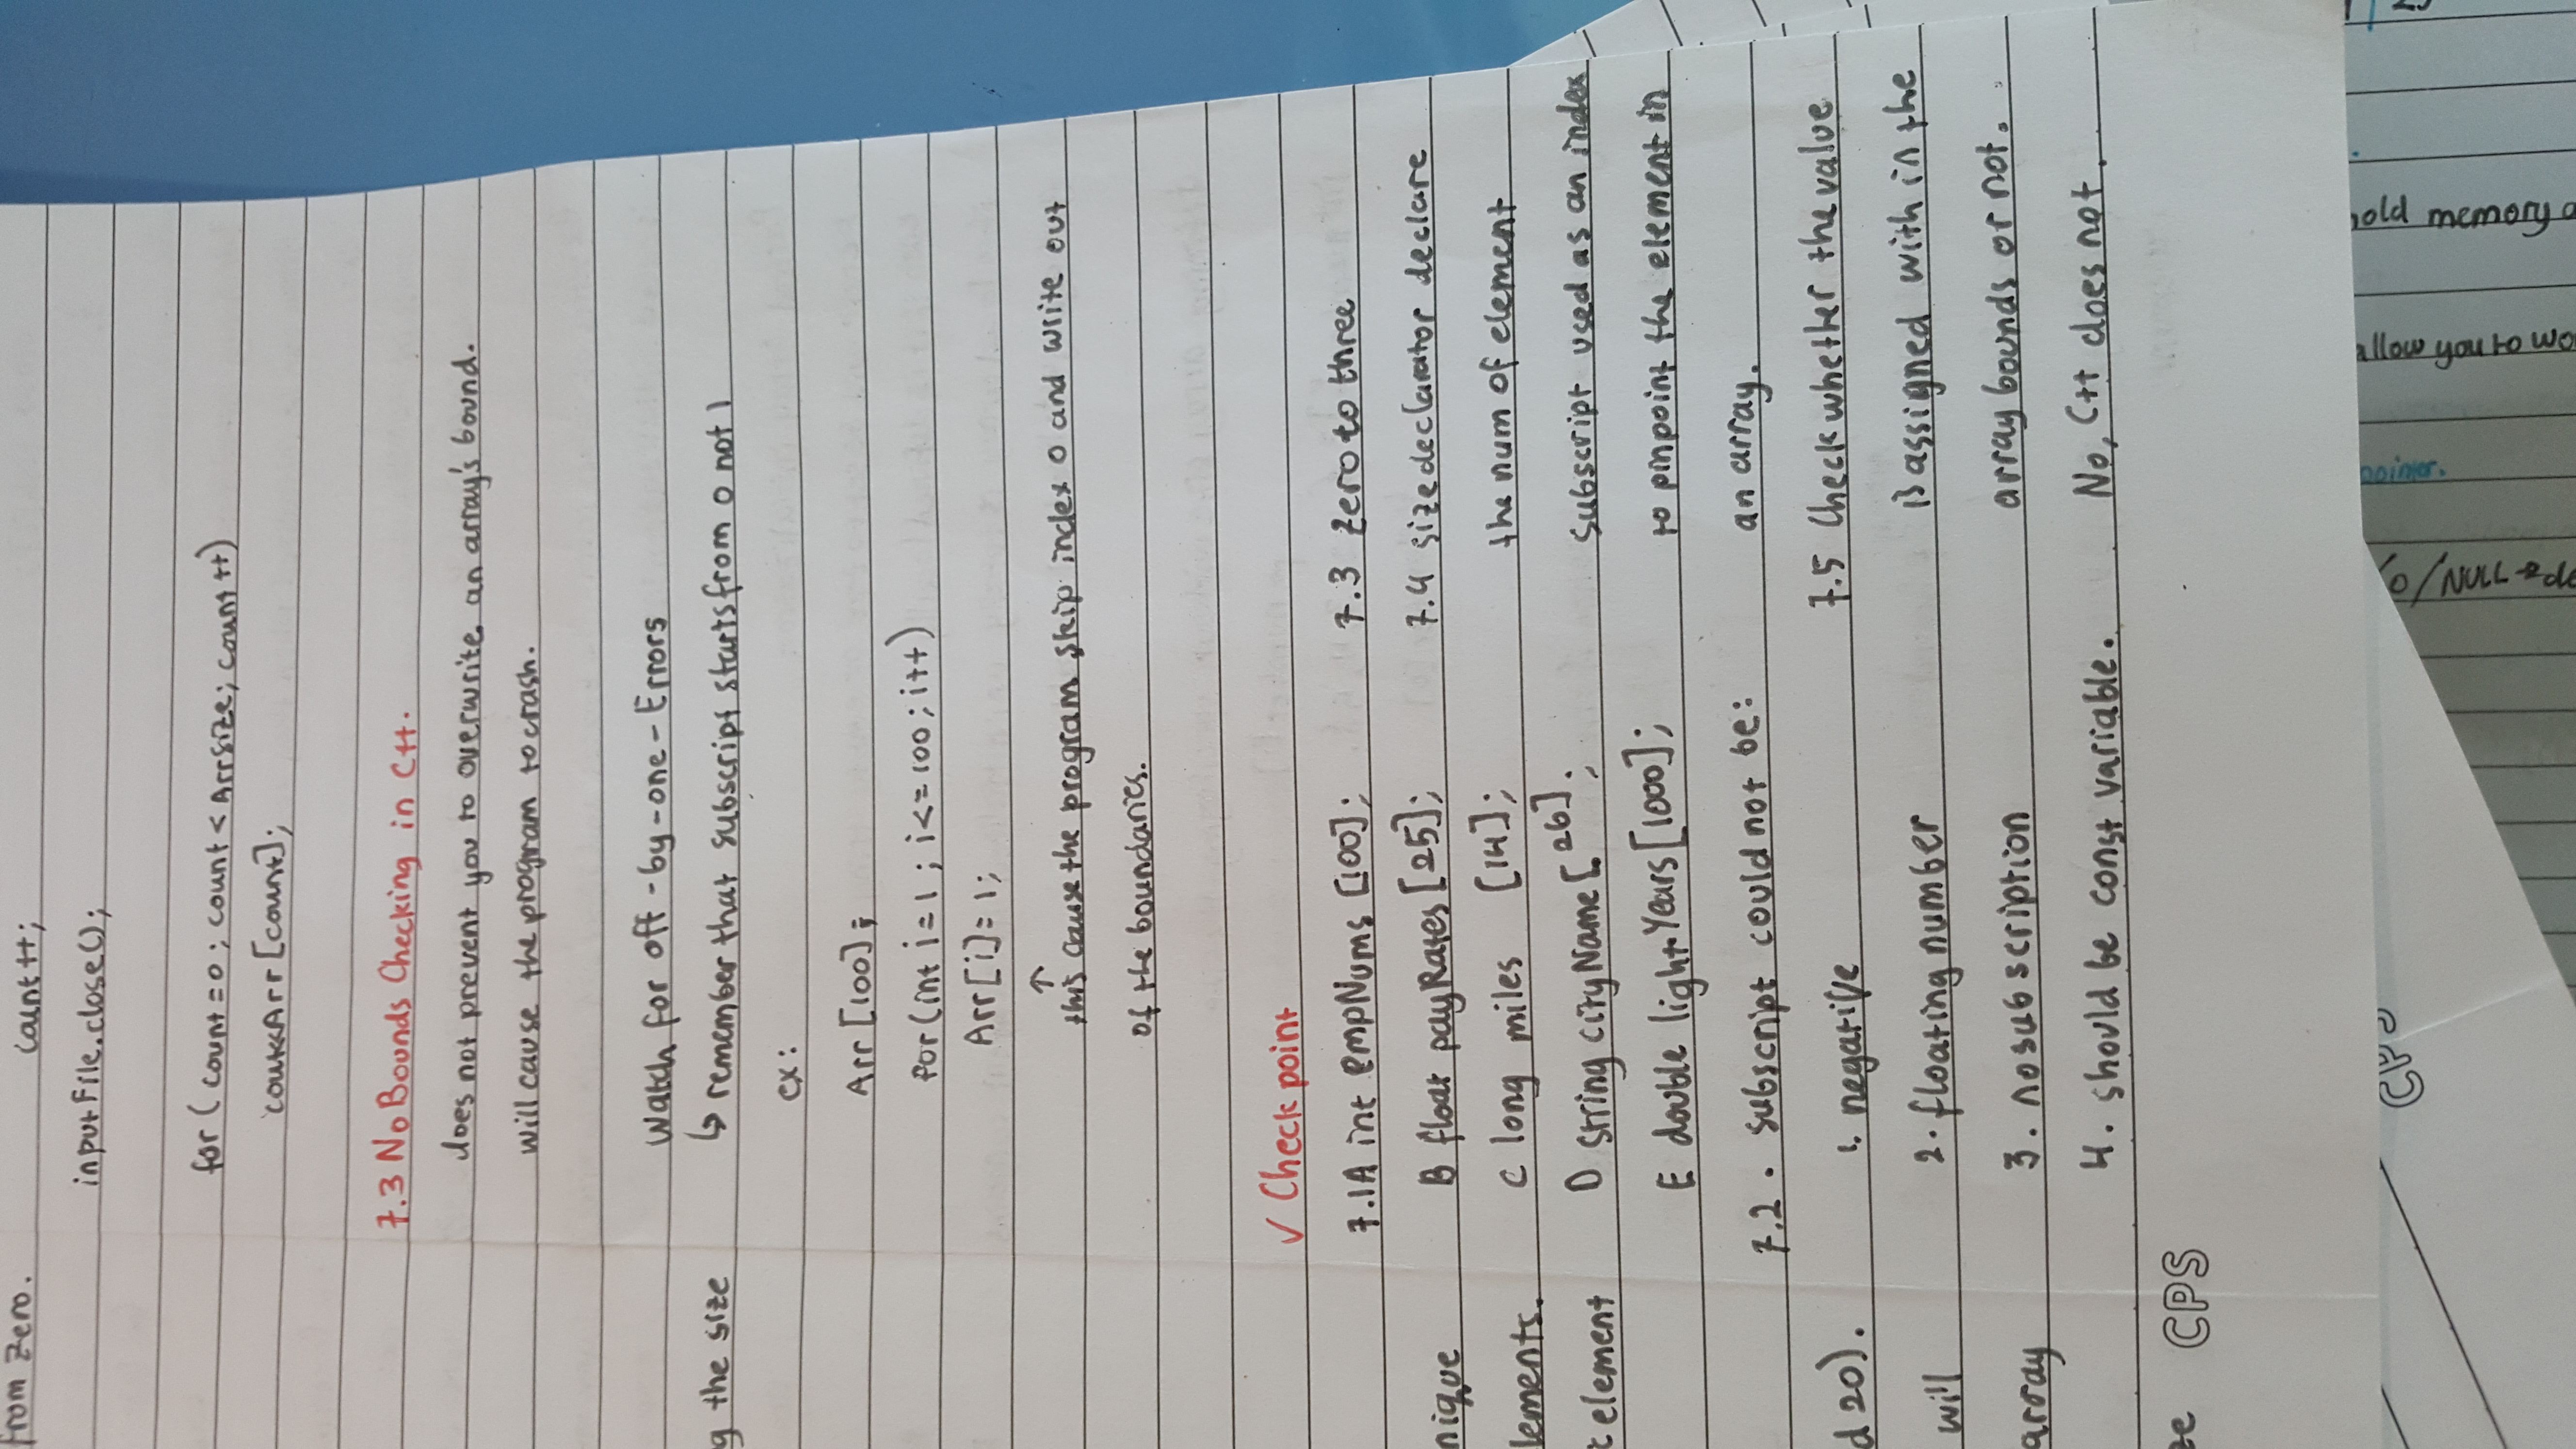 from zero.
count++;
inputFile.close();
for (count=0; count<ArrSize; count++)
cout<<Arr[count];
7.3 No Bounds Checking in C++.
does not prevent you to overwrite an array's bound.
will cause the program to crash.
Watch for off-by-one-Errors
g the size
↳ remember that subscript starts from 0 not 1
ex:
Arr[100];
for(int i=1; i<=100; i++)
Arr[i]=1;
↑
this cause the program skip index 0 and write out
of the boundaries.
✓ Check point
7.1A int empNums [100];
B float payRates [25];
C long miles [14];
D string cityName [26];
E double lightYears [1000];
7.2. subscript could not be:
1. negative
2. floating number
3. no subscription
4. should be const variable.
7.3 Zero to three
7.4 size declarator declare
the num of element
subscript used as an index
to pinpoint the element in
an array.
7.5 Check whether the value
is assigned with in the
array bounds or not.
No, C++ does not.
nique
lements.
t element
d 20).
will
array
ze
CPS
CPS
0/NULL→de
pointer.
allow you to wo
hold memory a